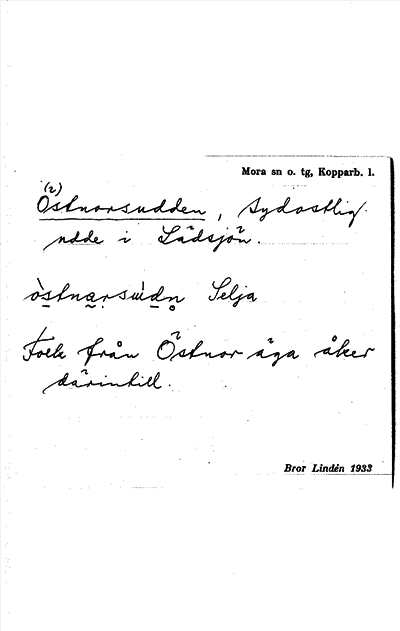 Mora sn o. tg, Kopparb. l.
(2)
Östnorsudden, sydostlig
udde i Sädsjön.
òstnạrsùdn̥ Selja
Folk från Östnor äga åker
därintill.
Bror Lindén 1933